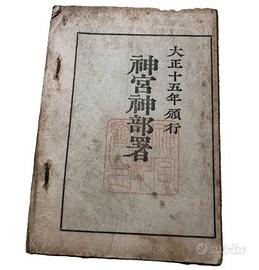 大正十五年頒行
神宮神部署
subito